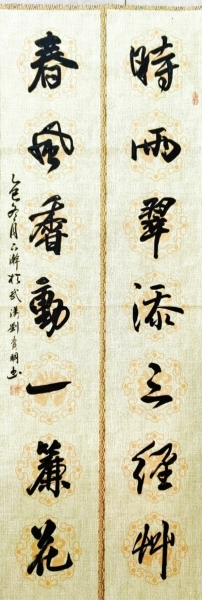 時雨翠添三經艸
春風香動一簾花
乙巳冬月六醉於武漢劉秀明書